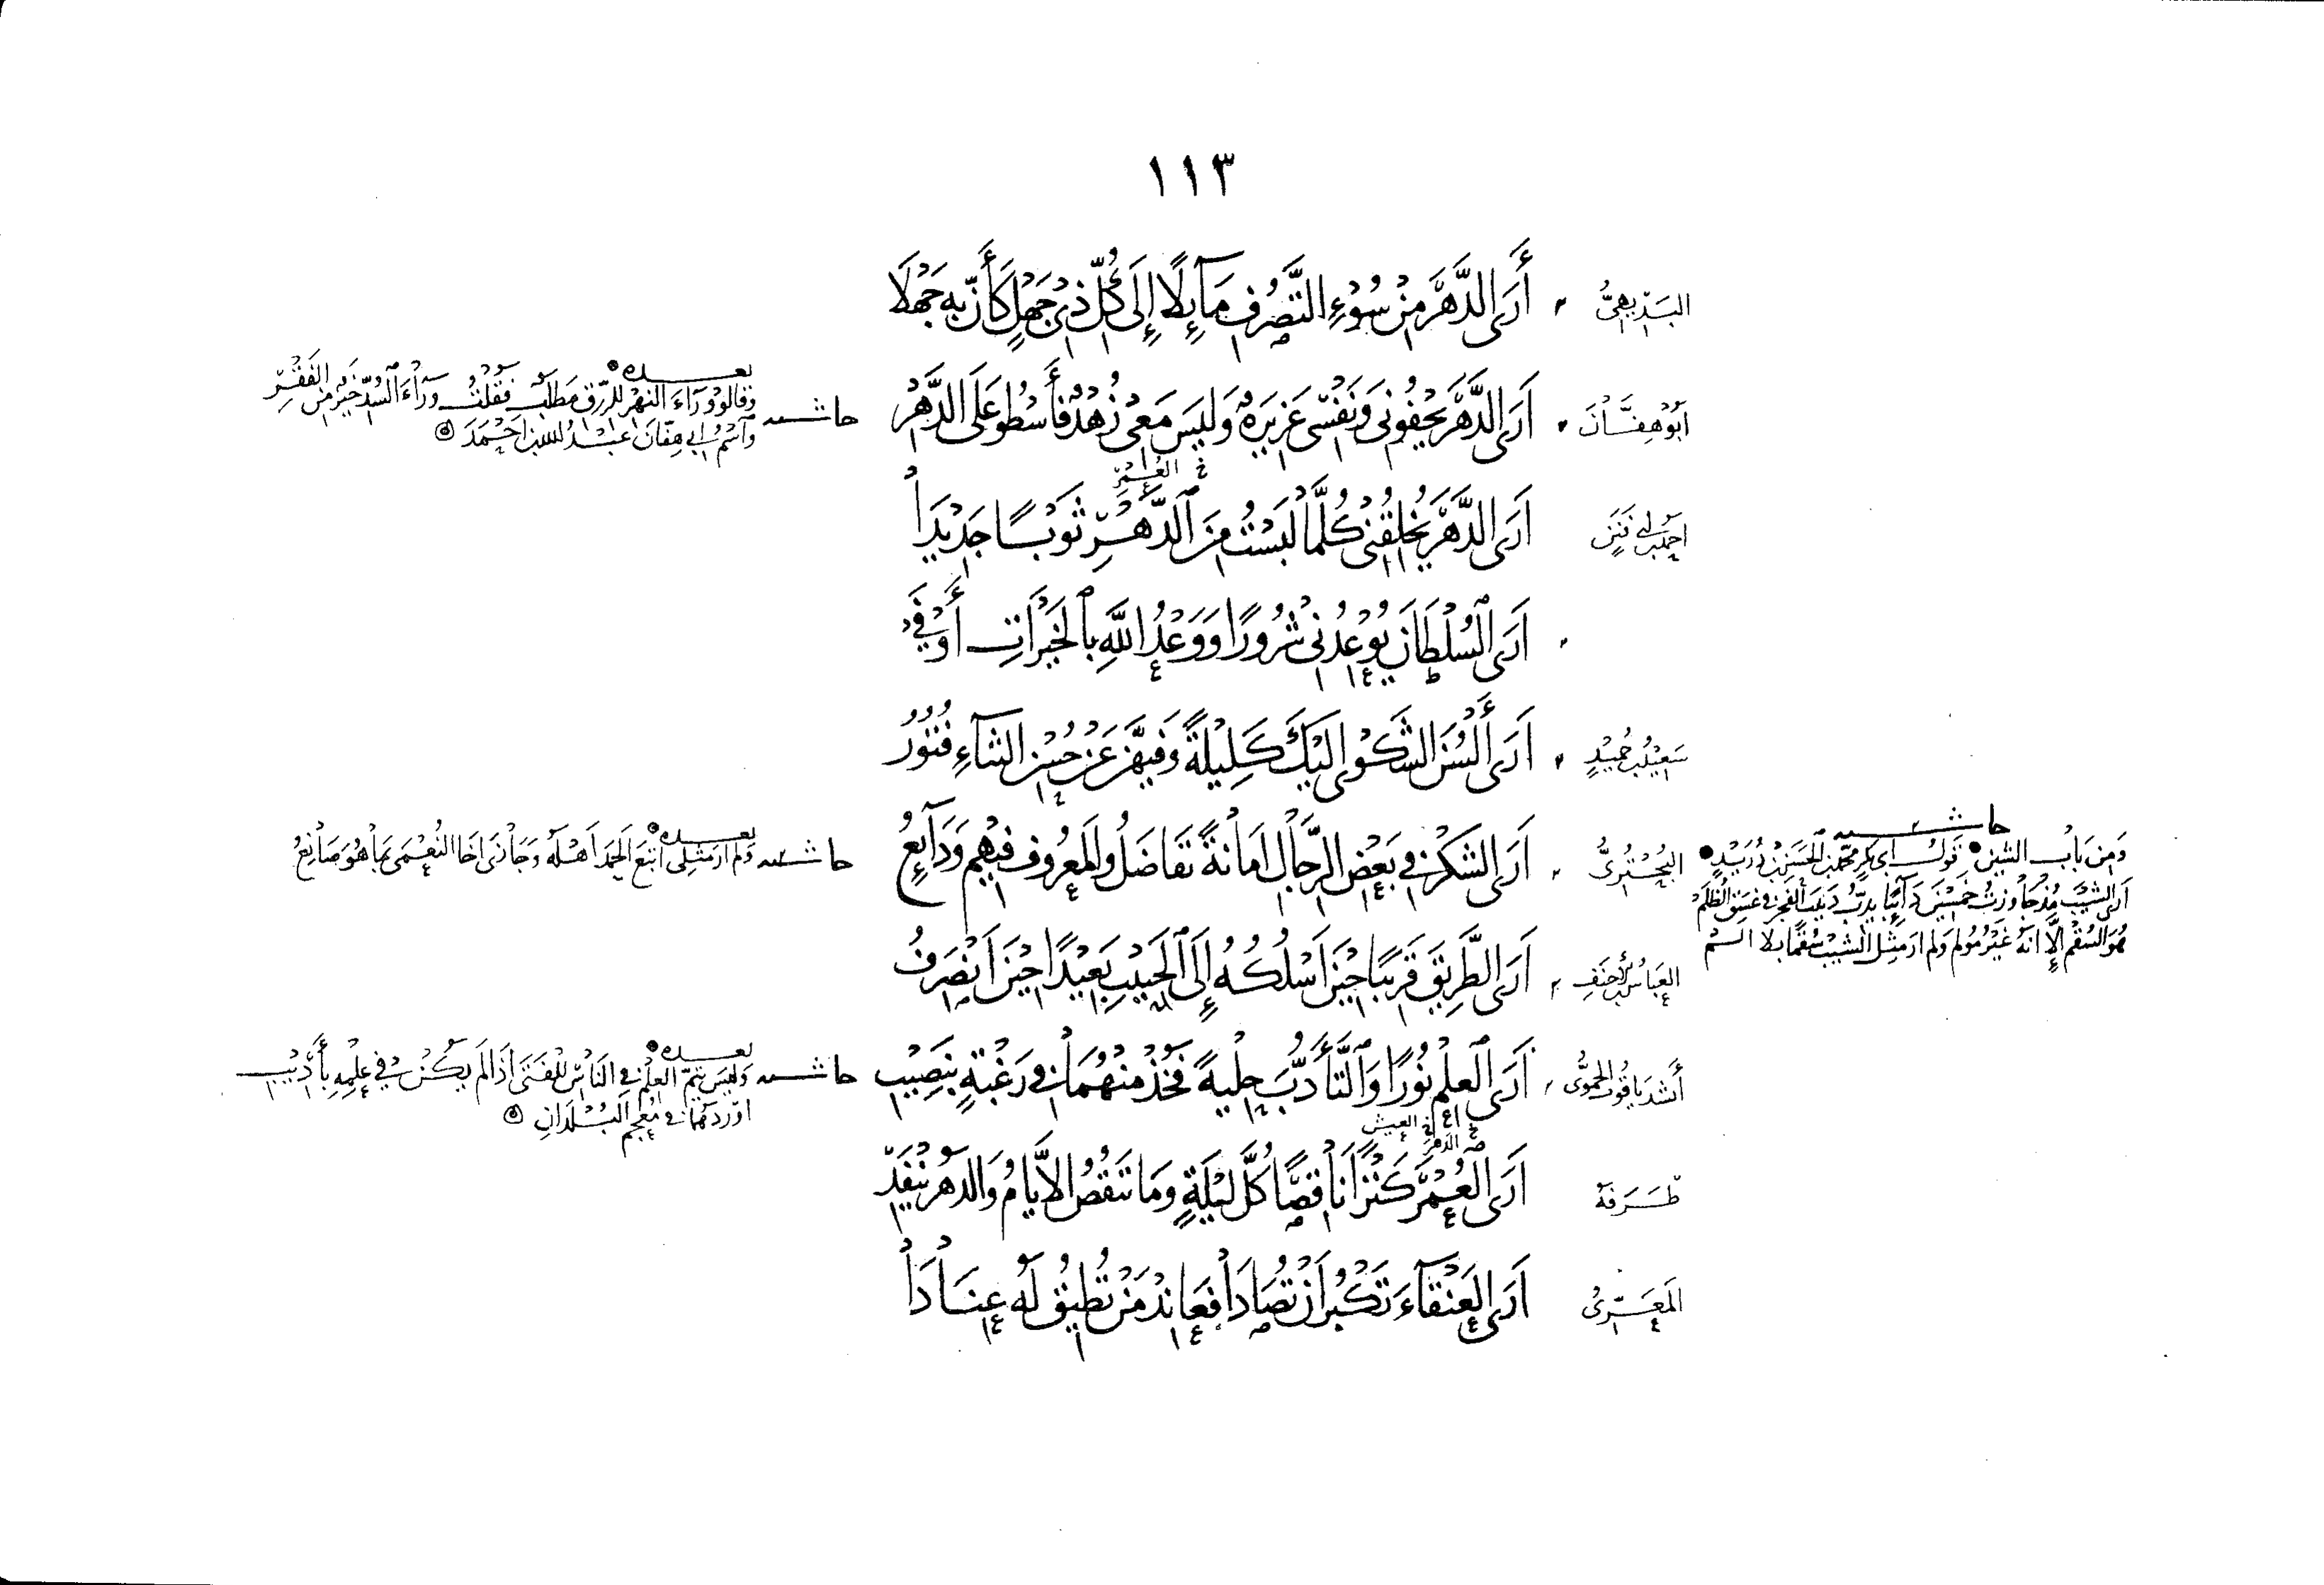 ١١٣
البَدِيهِيُّ
أَرَى الدَّهْرَ مِنْ سُوْءِ التَّصَرُّفِ مَآئِلًا إِلَى كُلِّ ذِيْ جَهْلٍ كَأَنَّ بِهِ جَهْلَا
أَبُوْ هِفَّانَ
أَرَى الدَّهْرَ يَجْفُوْنِي وَنَفْسِي عَزِيزَةٌ وَلَيْسَ مَعِيْ زُهْدٌ فَأَسْطُو عَلَى الدَّهْرِ
حاشية
بعده
وَقَالُوْا وَرَآءَ النَّهْرِ لِلرِّزْقِ مَطْلَبٌ فَقُلْتُ وَرَآءَ السُّدِّ خَيْرٌ مِنَ الفَقْرِ
وَاسْمُ أَبِي هِفَّانَ عَبْدُ اللهِ بن أَحْمَدَ
في العُمْرِ
أَحْمَدُ بن أَبِي فَنَنٍ
أَرَى الدَّهْرَ يُخْلِقُنِيْ كُلَّمَا لَبِسْتُ مِنَ الدَّهْرِ ثَوْبًا جَدِيْدَا
أَرَى السُّلْطَانَ يُوْعِدُنِيْ شُرُورًا وَوَعْدُ اللهِ بِالْخَيْرَاتِ أَوْفَى
سَعِيْدُ بن حُمَيْدٍ
أَرَى أَلْسُنَ الشَّكْوَى إِلَيْكَ كَلِيْلَةً وَفِيْهِنَّ عَنْ حُسْنِ الثَّنَآءِ فُتُوْرُ
البُحْتُرِيُّ
أَرَى الشُّكْرَ فِي بَعْضِ الرِّجَالِ أَمَانَةً تَفَاضَلُ وَالْمَعْرُوفُ فِيْهِمْ وَدَآئِعُ
حاشية
بعده
وَلَمْ أَرَ مِثْلِي أَتْبَعَ الْحَمْدَ أَهْلَهُ وَجَازَى أَخَا النُّعْمَى بِمَا هُوَ صَانِعُ
حاشية
وَمِنْ بَابِ الشَّيْنِ قَوْلُ أَبِي بَكْرٍ مُحَمَّدِ بن الْحَسَنِ بن دُرَيْدٍ
أَرَى الشَّيْبَ مُذْ جَاوَزْتُ خَمْسِيْنَ دَآئِبًا يَدِبُّ دَبِيْبَ الفَجْرِ فِي غَسَقِ الظُّلَمْ
هُوَ السُّقْمُ إِلَّا أَنَّهُ غَيْرُ مُؤْلِمٍ وَلَمْ أَرَ مِثْلَ الشَّيْبِ سُقْمًا بِلَا أَلَمْ
العَبَّاسُ بن الأَحْنَفِ
أَرَى الطَّرِيْقَ قَرِيْبًا حِيْنَ أَسْلُكُهُ إِلَى الْحَبِيْبِ بَعِيْدًا حِيْنَ أَنْصَرِفُ
أَنْشَدَ يَاقُوتُ الْحَمَوِيُّ
أَرَى العِلْمَ نُوْرًا وَالتَّأَدُّبَ حِلْيَةً فَخُذْ مِنْهُمَا فِي رَغْبَةٍ بِنَصِيْبِ
حاشية
بعده
وَلَيْسَ يَتِمُّ العِلْمُ فِي النَّاسِ لِلْفَتَى إِذَا لَمْ يَكُنْ فِي عِلْمِهِ بِأَدِيْبِ
أَوْرَدَهُمَا فِي مُعْجَمِ البُلْدَانِ
العيش
الدهر
طَرَفَةُ
أَرَى العُمْرَ كَنْزًا نَاقِصًا كُلَّ لَيْلَةٍ وَمَا تَنْقُصُ الأَيَّامُ وَالدَّهْرُ يَنْفَدِ
المَعَرِّيُّ
أَرَى العَنْقَآءَ تَكْبُرُ أَنْ تُصَادَا فَعَانِدْ مَنْ تُطِيْقُ لَهُ عِنَادَا